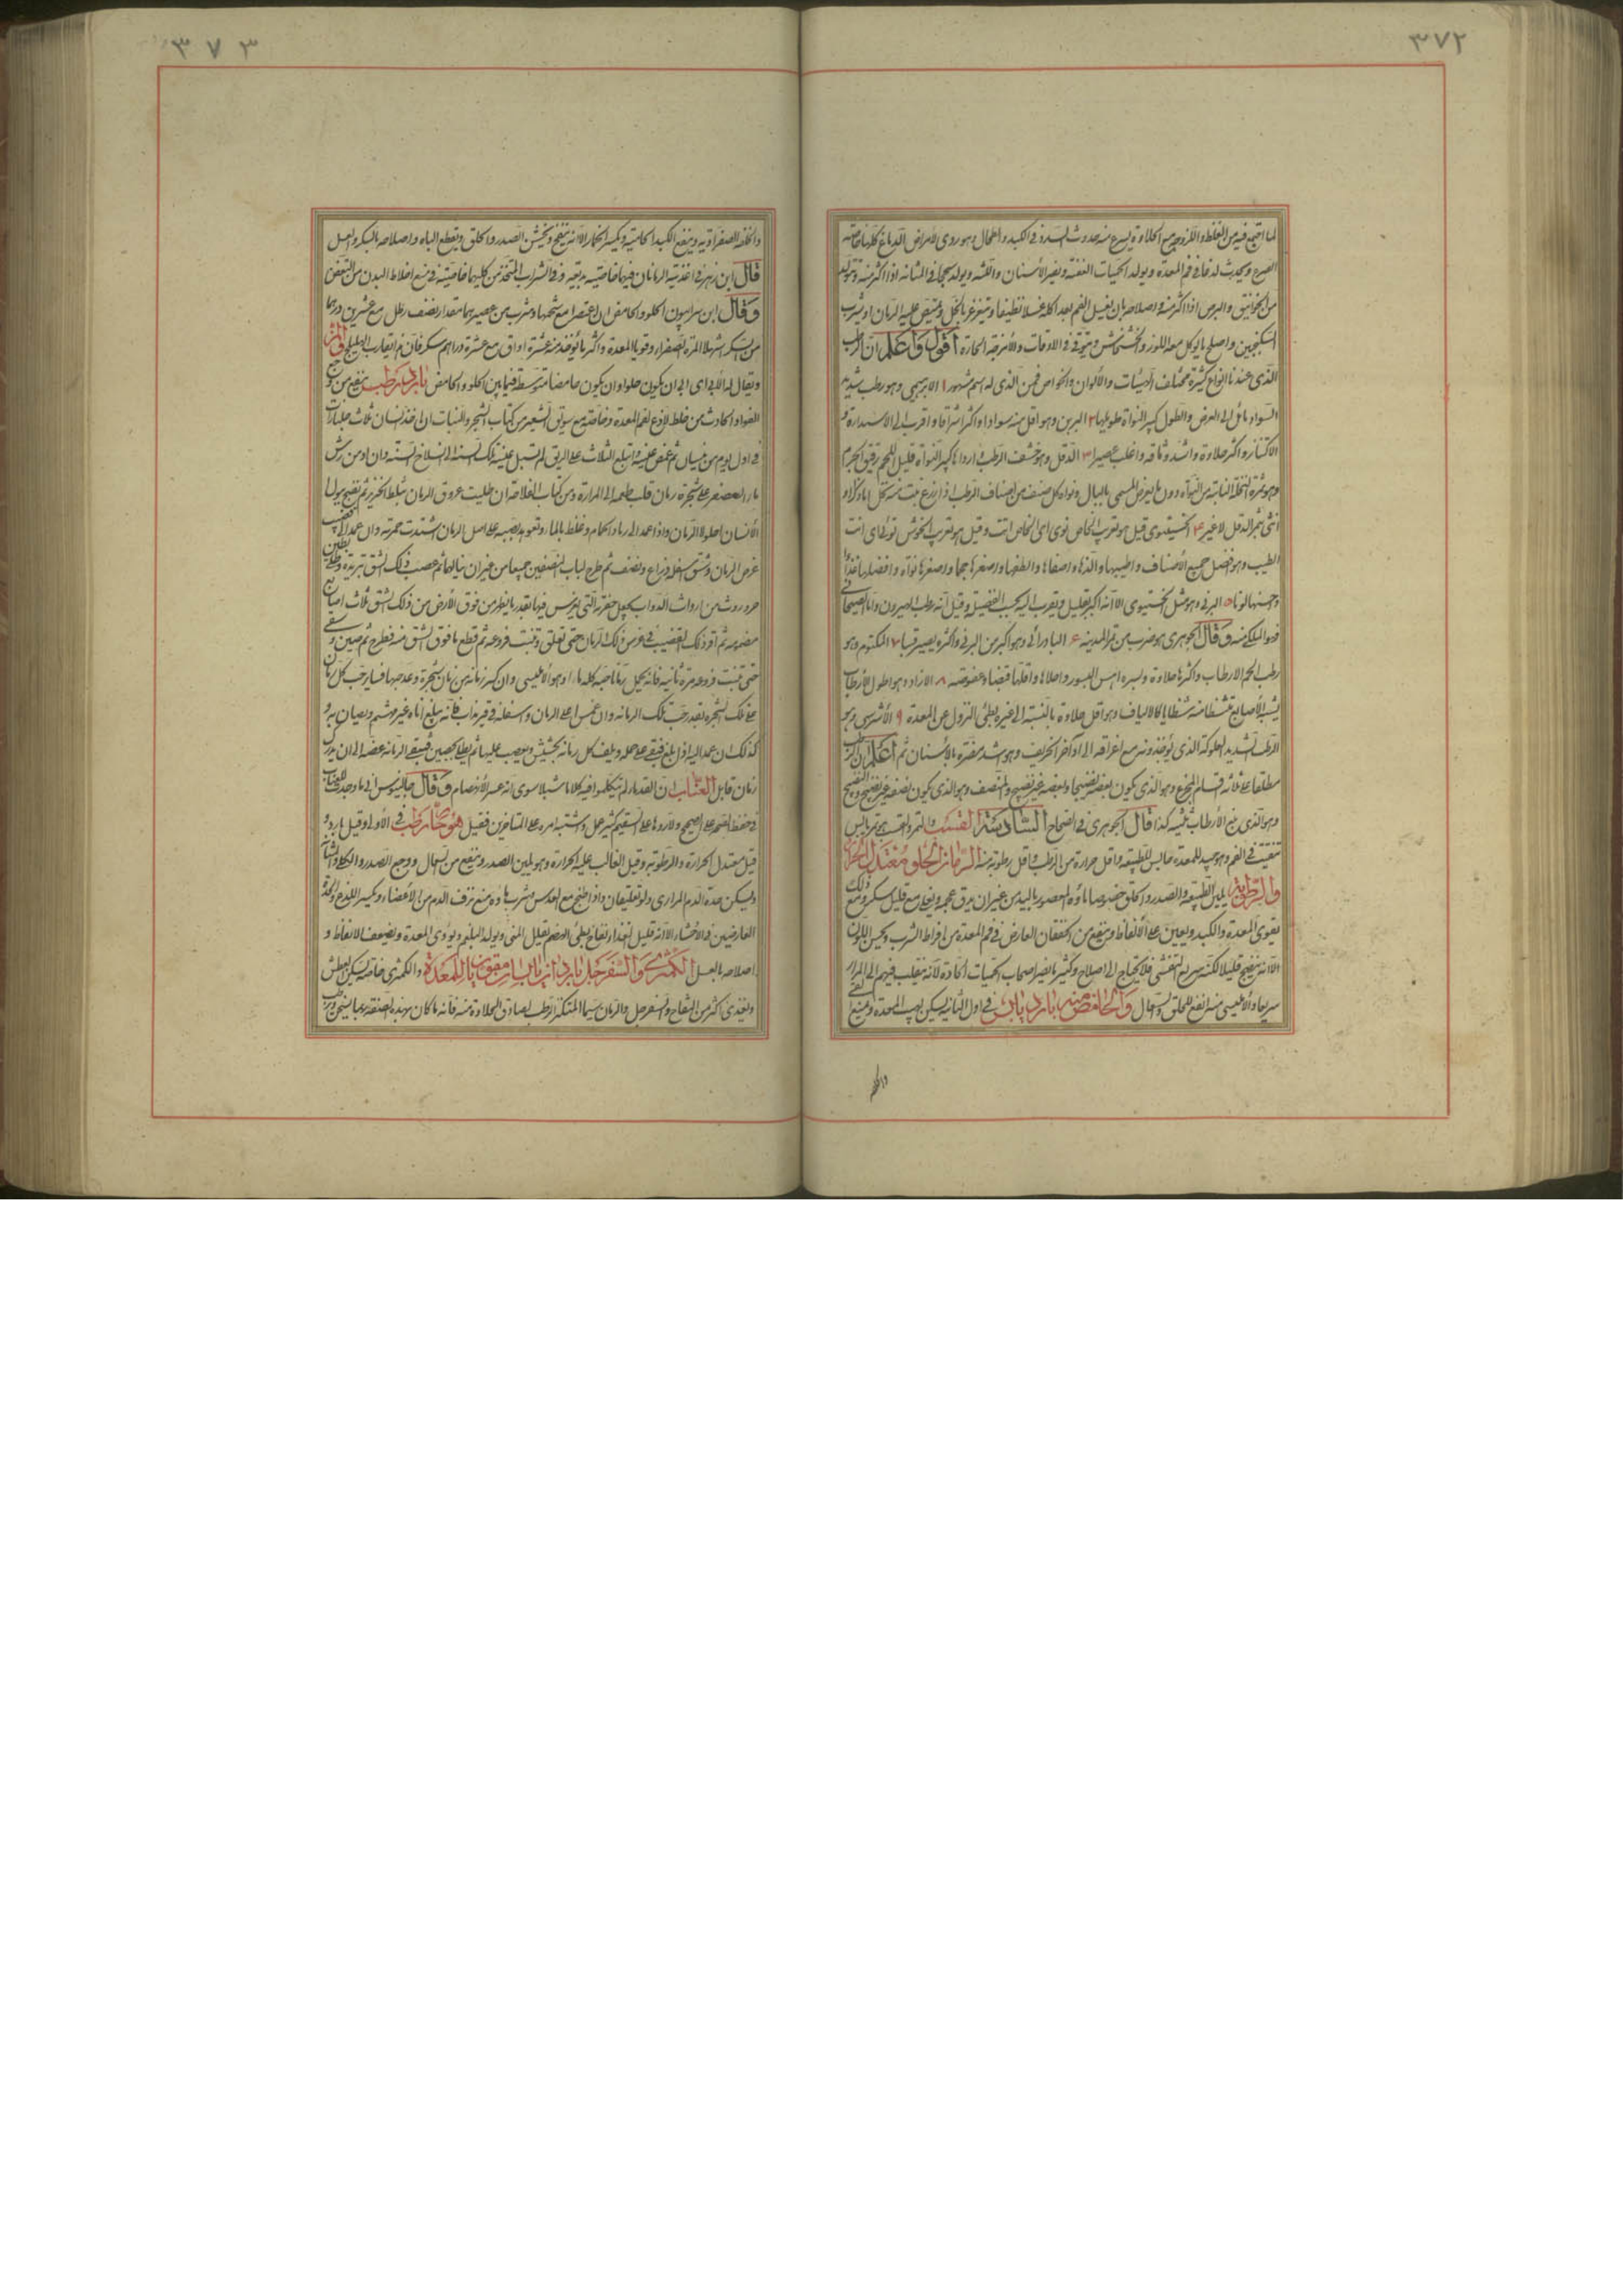 ٣٧٢
لما اجتمع فيه من الغلظ واللزوجة مع الحلاوة يسرع منه حدوث السدد في الكبد والطحال وهو ردي لأمراض الدماغ كلها خاصة
الصرع ويحدث لذعا في فم المعدة ويولد الحميات العفنة ويضر الأسنان واللثة ويولد في المثانة اذا اكثر منه
من الخوانيق والبرص اذا اكثر منه واصلاحه بان يغسل الفم بعد اكله غسلا نظيفا ويتغرغر بالخل ويمتص عليه الرمان او يشرب
السكنجبين واصلح ما يوكل معه اللوز والخشخاش ويتوقى في الاوقات والأمزجة الحارة أقول واعلم ان الرطب
الذي عندنا انواع كثيرة مختلف الهيئات والألوان والخواص فمن الذي له اسم مشهور ١ الابرهيمي وهو رطب شديد
السواد مائل الى العرض والطول كبير النواة طويلها ٢ البرين وهو اقل منه سوادا واكثر اشراقا واقرب الى الاستدارة و
الاكتناز واكثر حلاوة واشد وثاقه واغلب عصيرا ٣ الدقل وهو خشف الرطب واردأها كبير النواة قليل اللحم رقيق الجرم
وهو ثمرة النخلة النابتة من النواة دون ما يغرض المسمى بالبال ونواة كل صنف من اصناف الرطب اذا زرع نبت منه نخل اما ذكر او
انثى ثمر الدقل لا غير ٤ الخستوي قيل هو تعريب الخاص توي اي الخاص انت وقيل هو تعريب الخوش توئي اي انت
الطيب وهو افضل جميع الأصناف واطيبها والذها واصفاها والطفها واصغرها حجما واصغرها نواة وافضلها غذاء
واحسنها لونا ٥ البرني وهو مثل الخستوي الا انه اكبر بقليل ويقرب اليه بحسب الفضيلة وقيل انه رطب الصيرون واما الصيحاني
وقال الجوهري هو ضرب من تمر المدينة ٦ البادرائي وهو اكبر من البرني واكثره يصير قسبا ٧ المكتوم وهو
رطب الحم الارطاب واكثرها حلاوة وبسره احسن البسور واحلاها واقلها قبضا وعفوصة ٨ الازاد وهو اطول الأرطاب
يشبه الأصابع شظايا كالالياف وهو اقل حلاوة بالنسبة الى غيره بطئ النزول عن المعدة ٩ الأشرسي وهو
الرطب الشديد العلوكة الذي يؤخذونه مع اعراقه الى اواخر الخريف وهو اشد مضرة بالأسنان ثم اعلم ان الرطب
مطلقا على ثلاثة اقسام المجزع وهو الذي يكون بعضه نضيجا وبعضه غير نضيج والمنصف وهو الذي يكون نصفه غير نضيج والنضيج
وهو الذي نضج الأرطاب ثلثيه كذا قال الجوهري في الصحاح السادسة القسب والتمر والقسب تمر يابس
يتفتت في الفم وهو جيد للمعدة حابس للطبيعة واقل حرارة من الرطب واقل رطوبة منه الرمان الحلو معتدل الحرارة
والرطوبة يلين الطبيعة والصدر والحلق خصوصا ماؤه المعصور باليد من غير ان يدق عجمه ويغلى مع قليل سكر
يقوي المعدة والكبد ويعين على الأنعاظ وينفع من الخفقان العارض في فم المعدة من افراط الشرب ويحسن اللون
الا انه ينفخ قليلا لكنه سريع التفشي فلا يحتاج الى اصلاح وكثيرا ما يضر اصحاب الحميات الحادة لأنه ينقلب فيهم الى المرار
سريعا والأمليسي منه انفع للحلق والسعال والحامض منه بارد يابس في اول الثانية يسكن لهيب المعدة وينفع
٣٧٣
والحكة الصفراوية وينفع الكبد الحامية ويكسر الخمار الا انه ينفخ ويخشن الصدر والحلق ويقطع الباه واصلاحه بالسكر والعسل
قال ابن زهر في اغذيته الرمانان فيهما خاصية بديعة وفي الشراب المتخذ من كليهما خاصية في منع اخلاط البدن من التعفن
وقال ابن سرابيون الحلو والحامض ان اعتصرا مع شحمهما وشرب من عصيرهما مقدار نصف رطل مع عشرين درهما
من السكر اسهلا المرة الصفراء وقويا المعدة واكثر ما يؤخذ منه عشرة اواق مع عشرة دراهم سكر فانه يقارب الهليلج والمز
ويقال له الأبي اي ابى ان يكون حلوا وان يكون حامضا متوسط فيما بين الحلو والحامض بارد رطب ينفع من وجع
الفؤاد الحادث من خلط لاذع لفم المعدة وخاصة مع سويق الشعير من كتاب الشجر والنبات ان اخذ انسان ثلاث جلنارات
في اول يوم من نيسان ثم غمض عينيه وابتلع الثلاث على الريق لم تسبل عينه تلك السنة الى انسلاخ السنة وان دمن رش
ماء العصفر على شجرة رمان قلب طعمه الى المرارة ومن كتاب الفلاحة ان طليت عروق الرمان بسلط الخنزير ثم نضح ببول
الأنسان احلولا الرمان واذا عمد الى رماد الحمام وخلط بالماء وتعوهد بصبه على اصل الرمان اشتدت حمرته وان عمد الى قضيب
غرض الرمان وشق اسفله ذراع ونصف ثم طرح لباب النصفين جميعا من غير ان يبالغها ثم عصب ذلك الشق ببردية وطلي بطين
حر وروث من ارواث الدواب يجعل حفرته التي يغرس فيها بقدر ما يظهر من فوق الأرض من ذلك الشق ثلاث اصابع
مضمومة ثم اقر ذلك القضيب في غرس ذلك الرمان حتى تعلق وتنبت فروعه ثم قطع ما فوق الشق منه فطرح ثم طين وسقي
حتى تنبت فروعه مرة ثانية فانه يحمل رمانا حبه كله ماء وهو الأمليسي وان كسر رمانة من رمان شجرة وعد حبها فسائر حب كل رمان
على تلك الشجرة بقدر حب تلك الرمانة وان غمس اعلى الرمان واسفله في قير مذاب فانه يبلغ اناه غير متشمم ويصان به و
كذلك ان عمد اليه اذا بلغ فيبقى على حمله ويلف كل رمانة بحشيش ويعصب عليها ثم يطلى بجصين فيبقى الرمانة غضة الى ان يدرك
رمان قابل العناب ان القدماء لم يتكلموا فيه كلاما مشبعا سوى انه عسر الأنهضام وقال جالينوس اني ما وجدت للعناب
في حفظ الصحة على الصحيح ولا ردها على السقيم كثير عمل واشتبه امره على المتاخرين فقيل هو حار رطب في الأولى وقيل بارد و
قيل معتدل الحرارة والرطوبة وقيل الغالب عليه الحرارة وهو يلين الصدر وينفع من السعال ووجع الصدر والكلى والمثانة
ويسكن حدة الدم المراري ولو تعليقا واذا طبخ مع العدس وشرب ماؤه منع نزف الدم من الأعضاء ويكسر اللذع والحدة
العارضين في الأحشاء الا انه قليل الغذاء نفاخ بطئ الهضم يقلل المني ويولد البلغم ويؤذي المعدة ويضعف الانعاظ و
اصلاحه بالعسل الكمثرى والسفرجل باردان يابسان مقويان للمعدة والكمثرى خاصة تسكن العطش
وتغذي اكثر من التفاح والسفرجل والرمان سيما المكتنز الرطب الصادق الحلاوة منه فانه ما كان بهذه الصفة ربما يسخن ورطب
والحكة